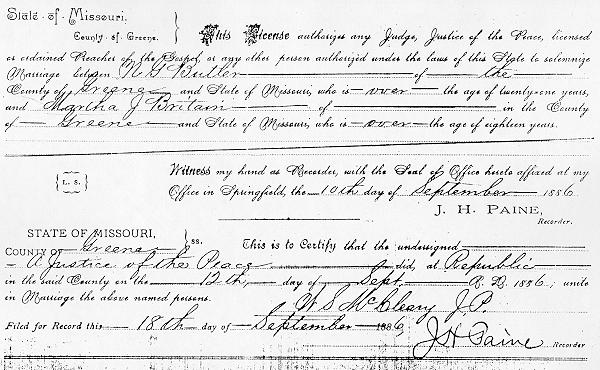 State of Missouri,
County of Greene.
This License authorizes any Judge, Justice of the Peace, licensed
or ordained Preacher of the Gospel, or any other person authorized under the laws of this State to solemnize
Marriage between N G Butler of the
County of Greene and State of Missouri, who is over the age of twenty-one years,
and Martha J Britain of in the County
of Greene and State of Missouri, who is over the age of eighteen years.
Witness my hand as Recorder, with the Seal of Office hereto affixed at my
L. S.
Office in Springfield, the 10th day of September 1886
J. H. PAINE,
Recorder.
STATE OF MISSOURI,
County of Greene ss.
This is to Certify that the undersigned
A Justice of the Peace did, at Republic
in the said County on the 12th day of Sept. A. D. 1886; unite
in Marriage the above named persons.
W S McCleary J.P.
Filed for Record this 18th day of September 1886
J H Paine Recorder